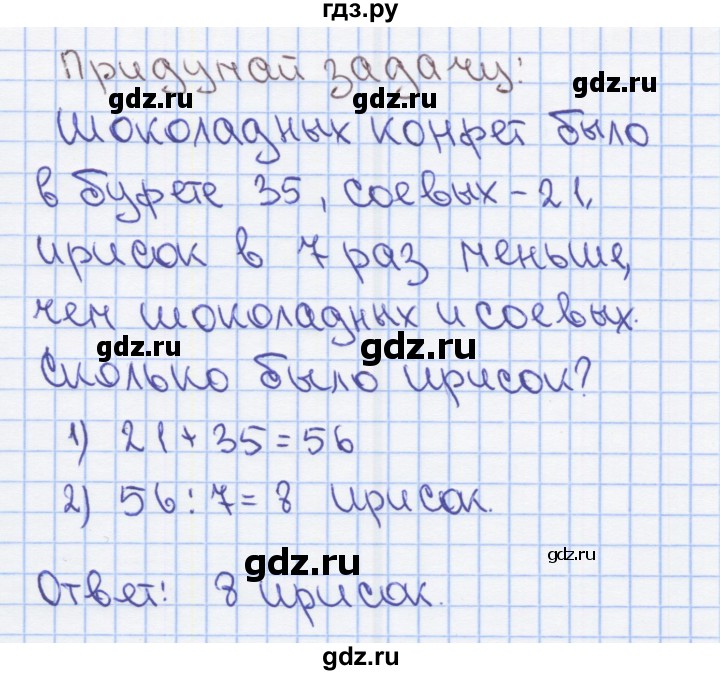 гдз.ру
Придумай задачу:
gdz.ru gdz.ru gdz.ru
Шоколадных конфет было
в буфете 35, соевых - 21,
ирисок в 7 раз меньше,
чем шоколадных и соевых.
gdz.ru gdz.ru
Сколько было ирисок?
1) 21 + 35 = 56
2) 56 : 7 = 8 ирисок.
gdz.ru gdz.ru
Ответ: 8 ирисок.
gdz.ru